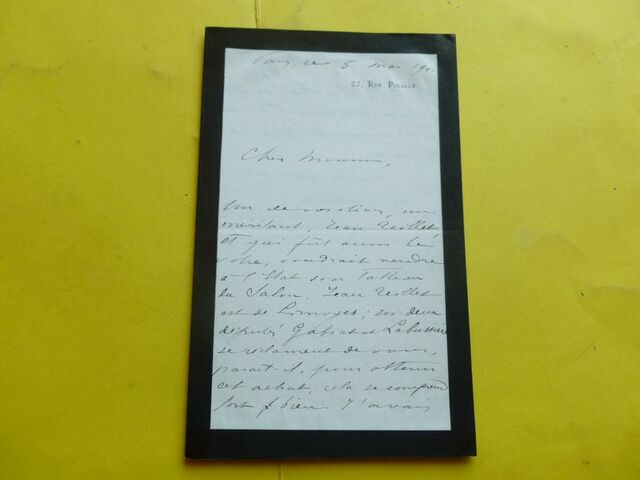 Paris, ce 5 mai 190
27, Rue Pigalle
Cher monsieur,
Un de vos élèves, un
méritant, Jean Teillet,
et qui fût aussi le
vôtre, voudrait vendre
à l'Etat son Tableau
du Salon. Jean Teillet
est de Limoges; ses deux
députés Gabiat et Labussière
se réclament de vous,
parait-il, pour obtenir
cet achat. cela se comprend
fort bien. J'avais